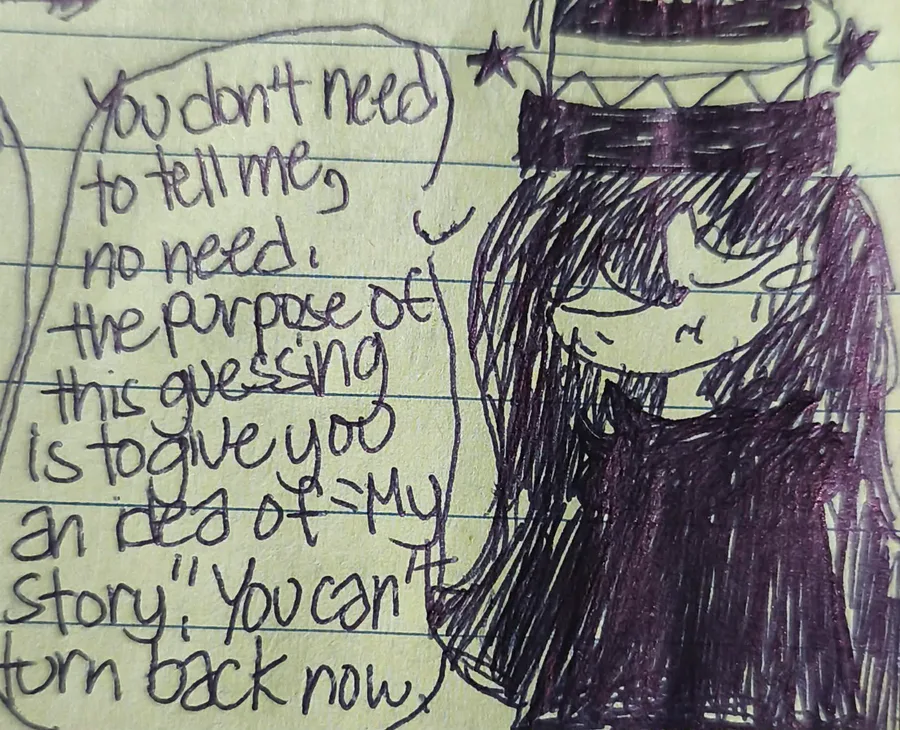 You don't need
to tell me,
no need.
the purpose of
this guessing
is to give you
an idea of "My
story". You can't
turn back now.